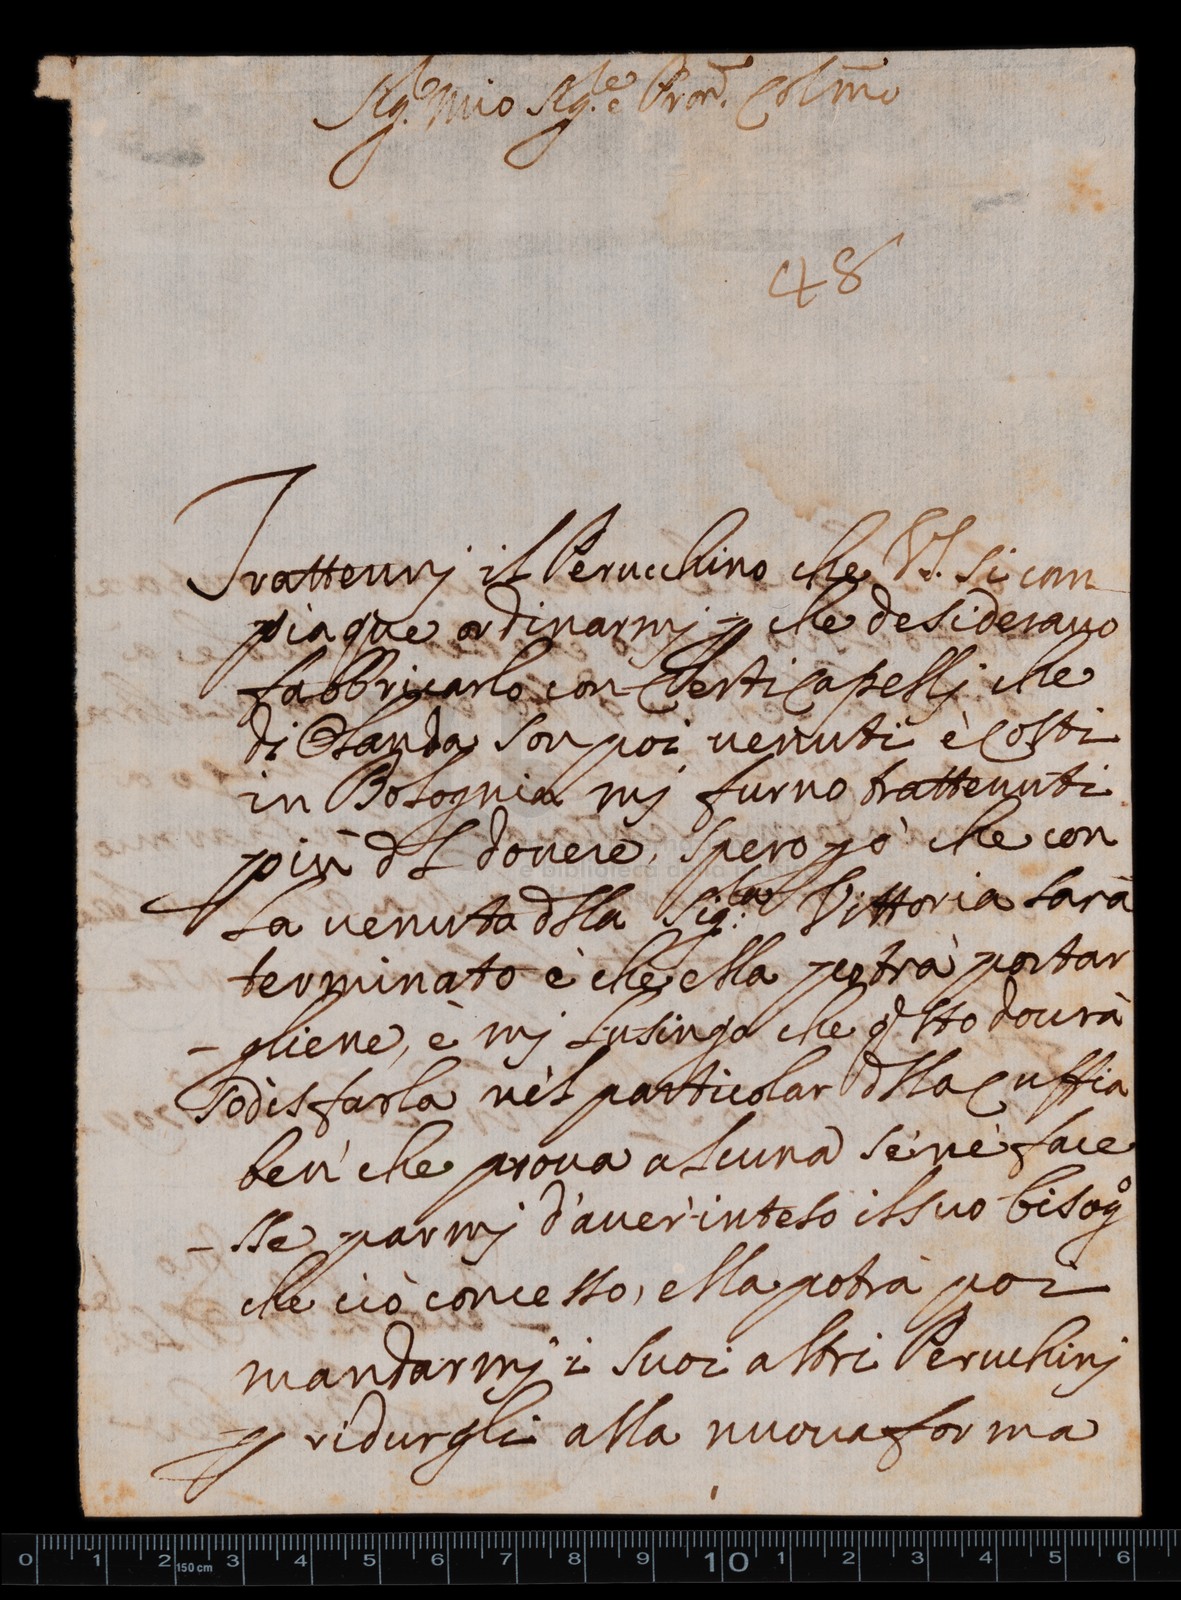 Sig.r Mio Sig.re e Pron. Colmo
48
Trattenni il Perucchino che V.S. si com
piaque ordinarmj p che desideravo
fabbricarlo con certi Capellj che
di Olanda son poi venuti è Costi
in Bolognia mj furno trattenuti
più dl dovere, spero pò che con
la venuta dlla Sig.la Vittoria sarà
terminato è che ella potrà portar
- gliene, è mj lusingo che qsto dovrà
sodisfarla nèl particolar dlla Cuffia
ben che prova alcuna sè nè face
- sse parmj d'aver inteso il suo bisog.o
che ciò concesso, ella potrà poi
mandarmj i suoi altri Peruchinj
p ridurgli alla nuova forma